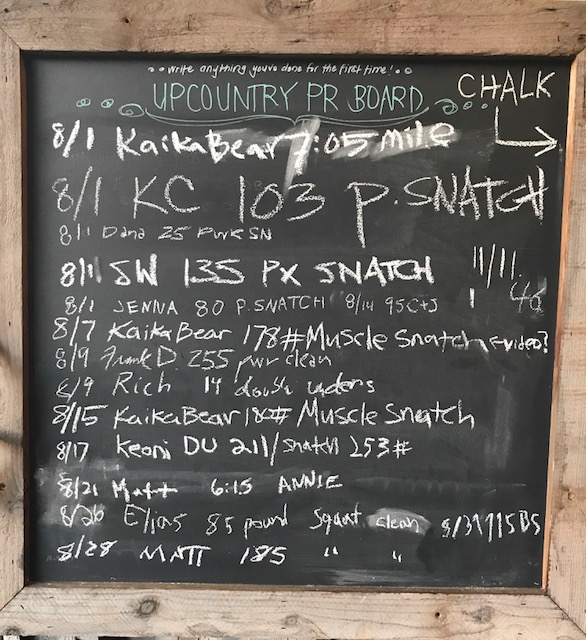 write anything you've done for the first time!
UPCOUNTRY PR BOARD
CHALK
8/1 KaikaBear 7:05 mile
8/1 KC 103 P. SNATCH
8/1 Dana 25 PWR SN
8/1 SW 135 PX SNATCH 11/11
8/1 JENNA 80 P. SNATCH 8/14 95 C+J
8/7 KaikaBear 178# Muscle Snatch video?
8/9 Frank D. 255 pwr clean
8/9 Rich 14 double unders
8/15 KaikaBear 180# Muscle Snatch
8/17 Keoni DU 211/snatch 253#
8/21 Matt 6:15 ANNIE
8/26 Elias 85 pound Squat clean 8/31 115 BS
8/28 MATT 185 " "